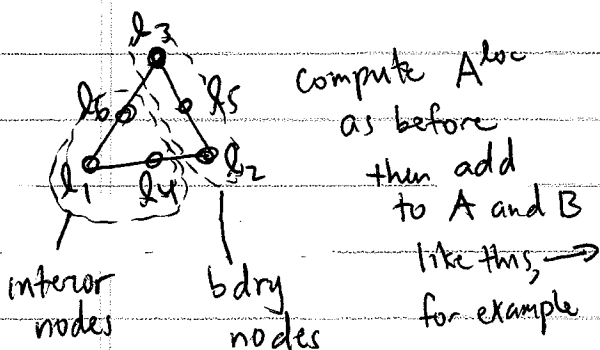 l3
l6
l5
l1
l4
l2
interor
nodes
bdry
nodes
compute A^loc
as before
then add
to A and B
like this, →
for example